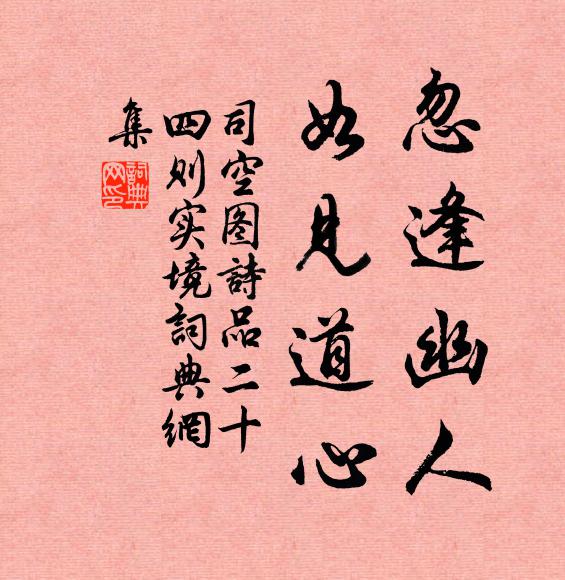 忽逢幽人
如见道心
司空图詩品二十
四则实境詞典網
集
詞典
网印